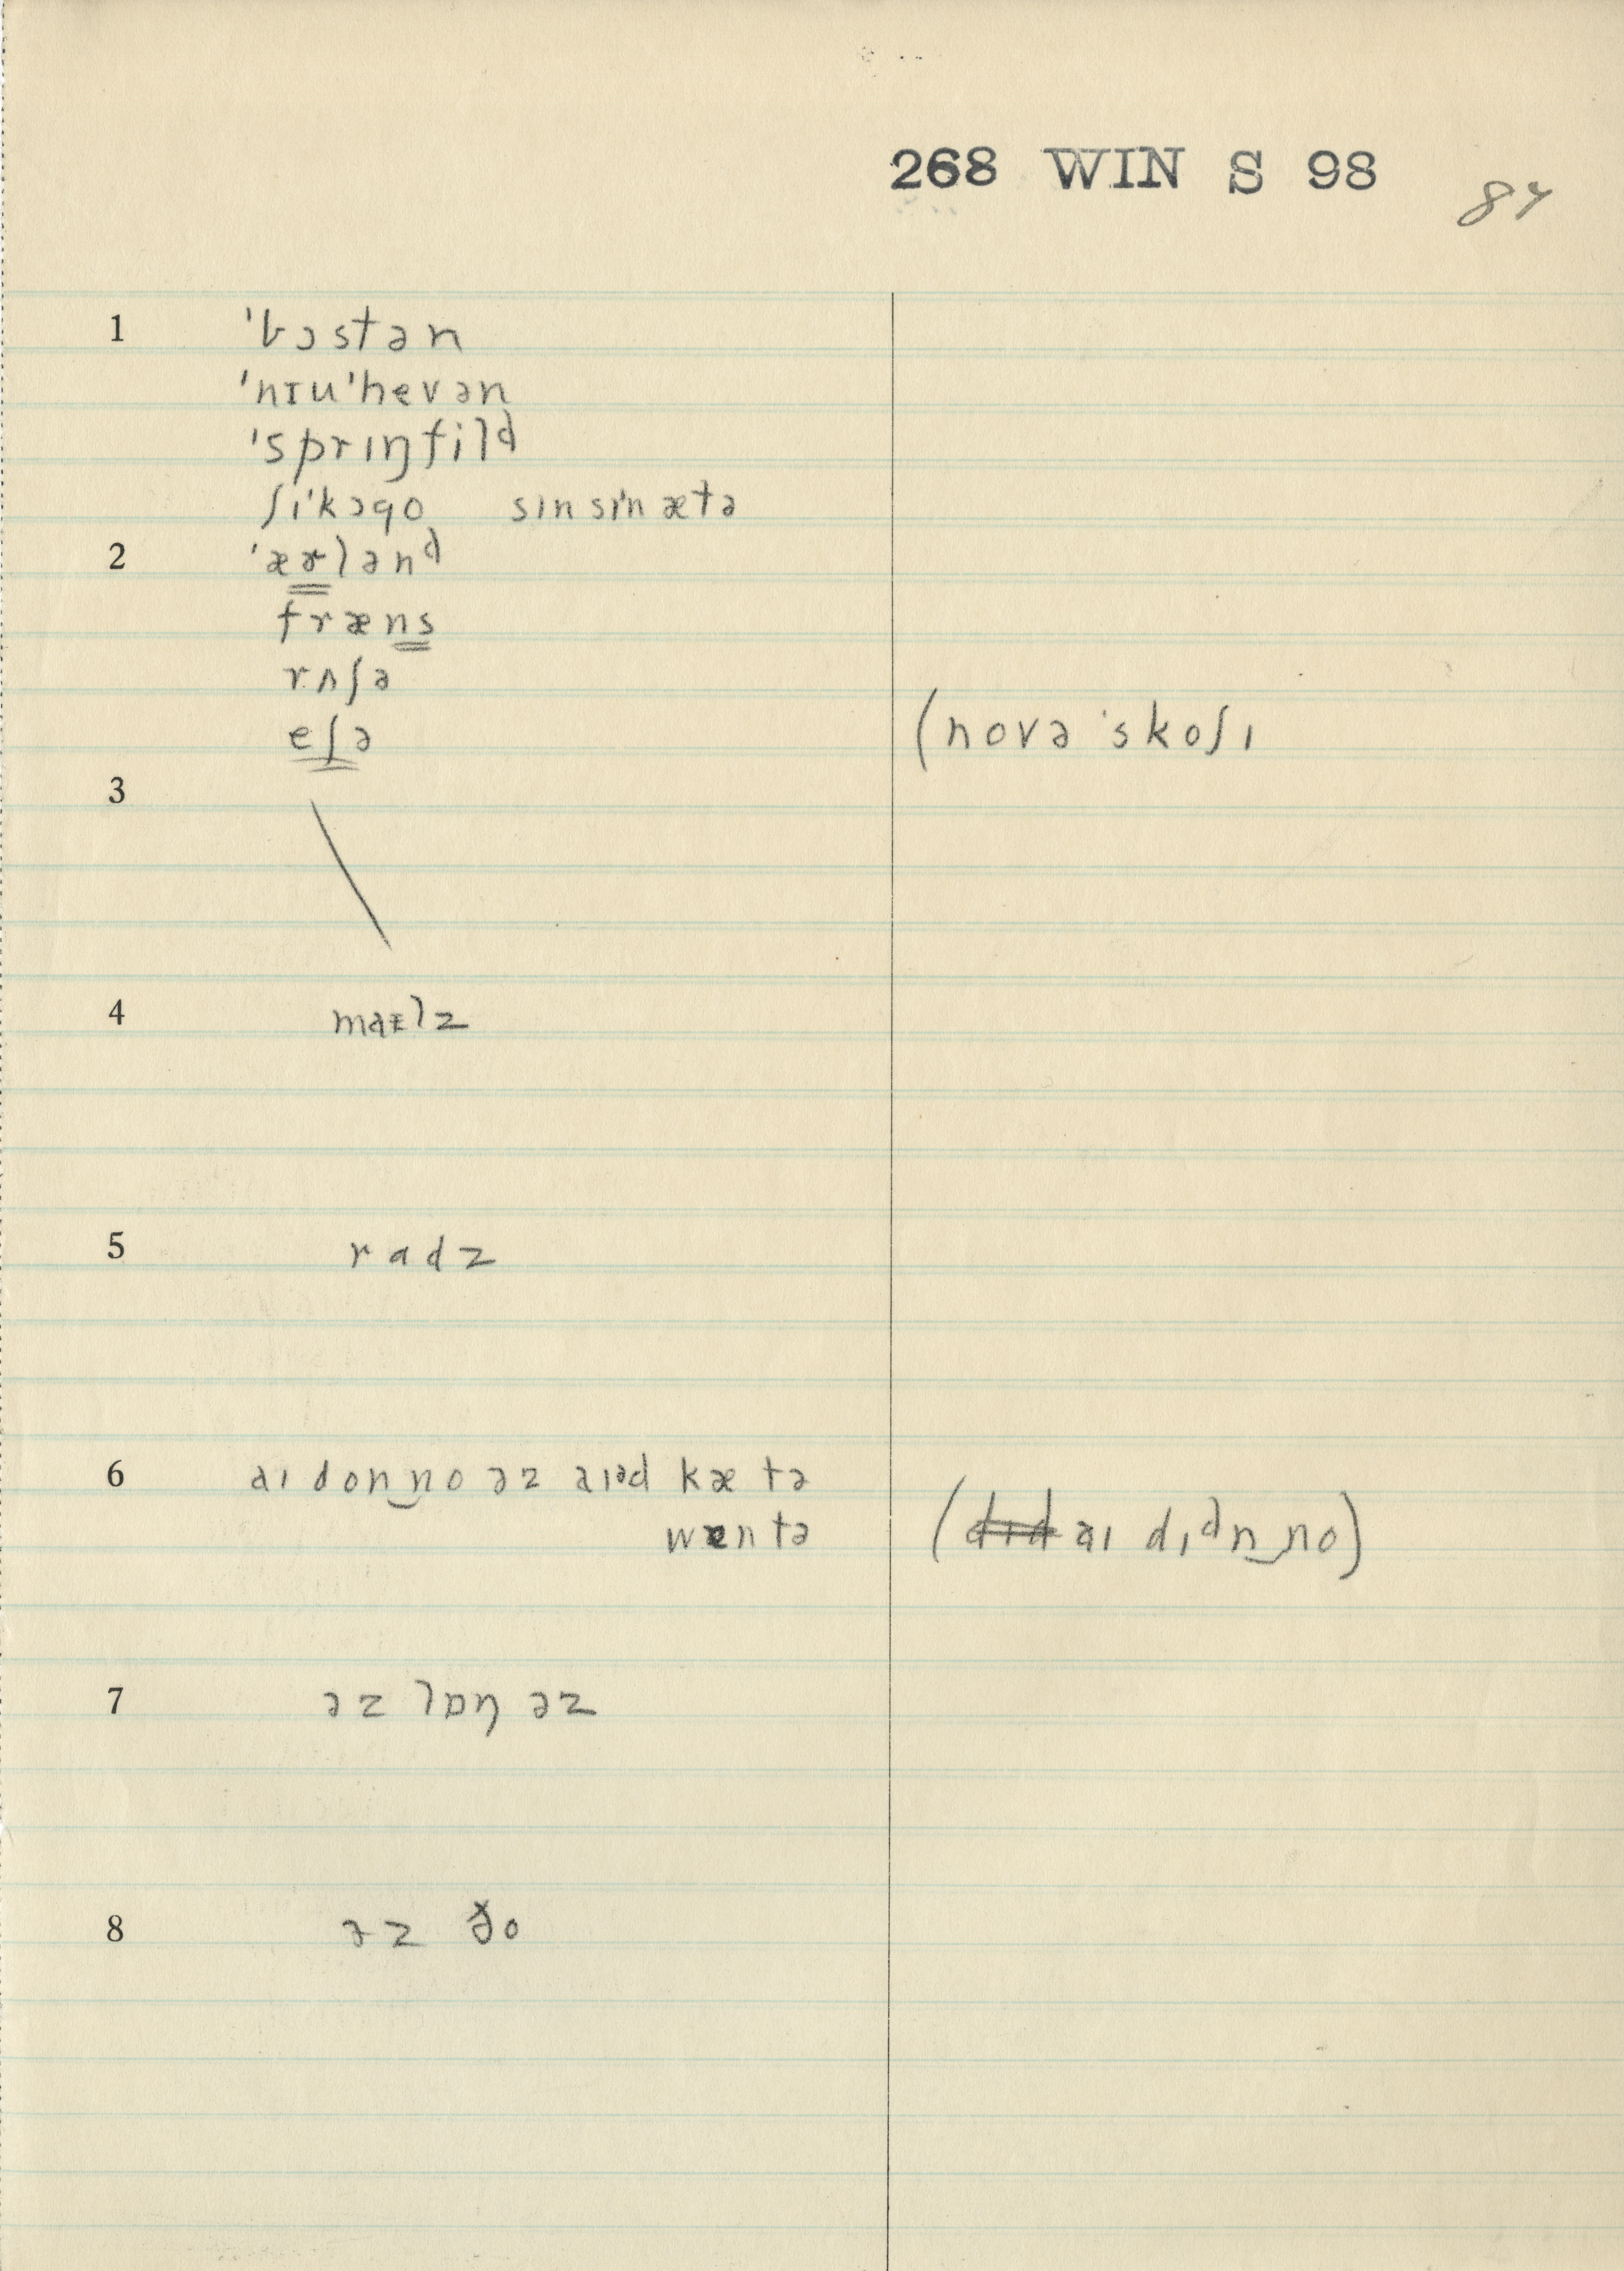 268 WIN S 98 84
1 ˈbɔstən
ˈnɪuˈhevən
ˈsprɪŋfilᵈ
ʃɪˈkɔgo sɪnsɪˈnætə
2 ˈæɚlənᵈ
fræns
rʌʃə
eʃə (novəˈskoʃɪ
3
4 maɪlz
5 radz
6 aɪ don‿no əz aɪəd kæ tə
wɛn tə (d̶ɪ̶d̶ aɪ dɪᵈn‿no)
7 əz lɒŋ əz
8 əz ðo